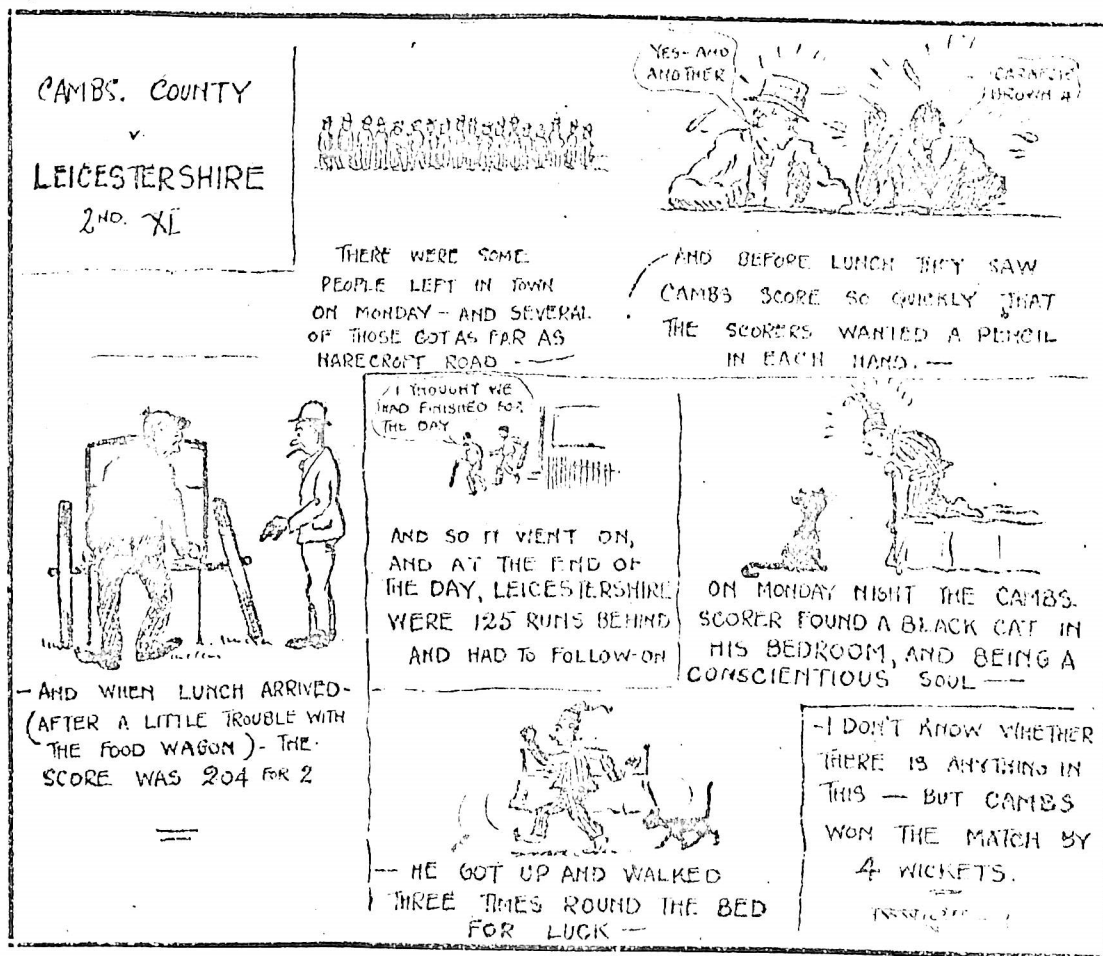 CAMBS. COUNTY
v.
LEICESTERSHIRE
2ND. XI
THERE WERE SOME
PEOPLE LEFT IN TOWN
ON MONDAY - AND SEVERAL
OF THOSE GOT AS FAR AS
HARECROFT ROAD -
YES - AND
ANOTHER
AND BEFORE LUNCH THEY SAW
CAMBS SCORE SO QUICKLY THAT
THE SCORERS WANTED A PENCIL
IN EACH HAND. -
- AND WHEN LUNCH ARRIVED -
(AFTER A LITTLE TROUBLE WITH
THE FOOD WAGON) - THE
SCORE WAS 204 FOR 2
I THOUGHT WE
HAD FINISHED FOR
THE DAY
AND SO IT WENT ON,
AND AT THE END OF
THE DAY, LEICESTERSHIRE
WERE 125 RUNS BEHIND
AND HAD TO FOLLOW-ON
ON MONDAY NIGHT THE CAMBS.
SCORER FOUND A BLACK CAT IN
HIS BEDROOM, AND BEING A
CONSCIENTIOUS SOUL -
- HE GOT UP AND WALKED
THREE TIMES ROUND THE BED
FOR LUCK -
- I DON'T KNOW WHETHER
THERE IS ANYTHING IN
THIS - BUT CAMBS
WON THE MATCH BY
4 WICKETS.